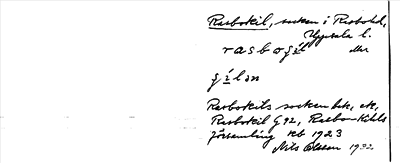 Rasbokil, socken i Rasbo hd,
Uppsala l.
rasbogíl
gílən
Rasbokils socken
Rasbokil G 92, Rasbo-Kihls
församling 1923
Nils Olsson 1932